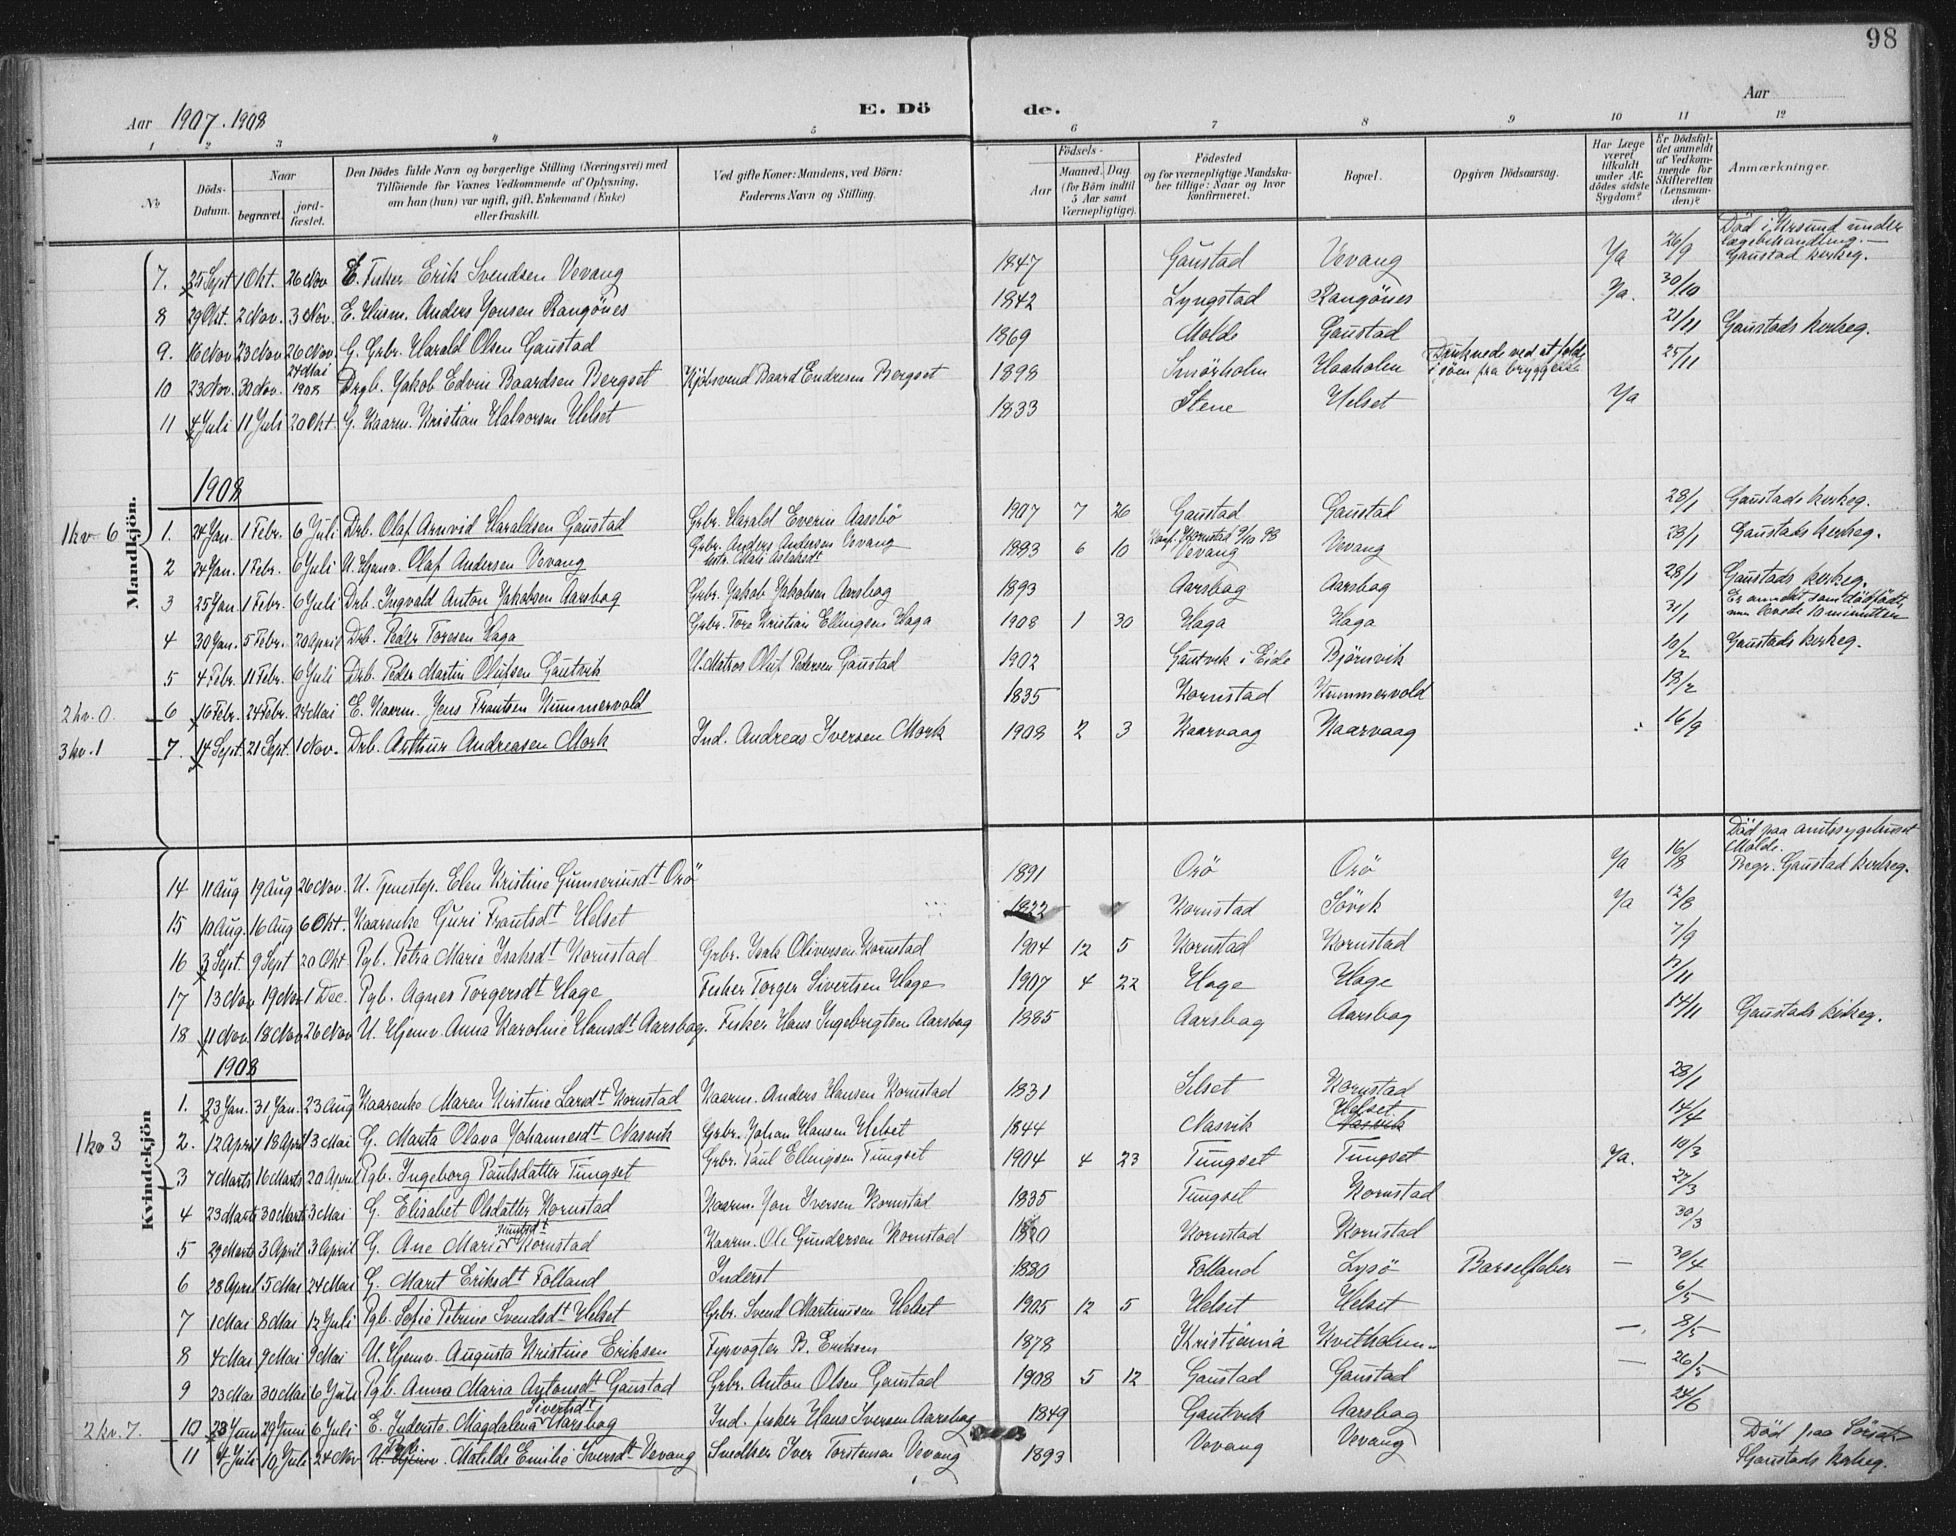 98
Aar 1907. 1908 E. Dö de. Aar
1 2 3 4 5 6 7 8 9 10 11 12
No.
Döds-Datum.
Naar
begravet.
jord-fæstet.
Den Dödes fulde Navn og borgerlige Stilling (Næringsvei) med
Tilföiende for Voxnes Vedkommende af Oplysning,
om han (hun) var ugift, gift, Enkemand (Enke)
eller fraskilt.
Ved gifte Koner: Mandens, ved Börn:
Faderens Navn og Stilling.
Födsels-
Aar
Maaned. Dag.
(for Börn indtil
5 Aar samt
Værnepligtige).
Födested
og for værnepligtige Mandska-
ber tillige: Naar og hvor
konfirmeret.
Bopæl.
Opgiven Dödsaarsag.
Har Læge
været
tilkaldt
under Af-
dödes sidste
Sygdom?
Er Dödsfal-
det anmeldt
af Vedkom-
mende for
Skifteretten
(Lensman-
den)?
Anmærkninger.
Mandkjön.
7. 25 Sept 1 Okt. 26 Nov E. Fisker Erik Svendsen Vevang 1847 Gaustad Vevang Ja 26/9 Död i Krsund under lægebehandling. — Gaustad kirkeg.
8 29 Okt. 2 Nov. 3 Nov. E. Husm. Anders Jonsen Rangönes 1842 Lyngstad Rangönes Ja. 30/10
9. 16 Nov 23 Nov 26 Nov. G. Grbr. Harald Olsen Gaustad 1869 Molde Gaustad 21/11 Gaustads kirkeg.
10 23 Nov. 30 Nov. 24 Mai 1908 Drgb. Jakob Edvin Baardsen Bergset Kjöbsvend Baard Endresen Bergset 1898 Smörholm Haaholen Druknede ved at falde i söen fra bryggen 25/11
11 4 Juli 11 Juli 20 Okt G. Kaarm. Kristian Halvorsen Helset 1833 Stene Helset Ja
1908
1 kv 6 1. 24 Jan. 1 Febr. 6 Juli Drb. Olaf Arnvid Haraldsen Gaustad Grbr. Harald Everin Aassbö 1907 7 26 Gaustad Gaustad 28/1 Gaustads kirkeg.
2 24 Jan. 1 Febr. 6 Juli U. Hjemv. Olaf Andersen Vevang Grbr. Anders Andersen Vevang 1883 6 10 Konf. Kornstad 9/10 98 Vevang Vevang 28/1 Gaustads kirkeg.
3 25 Jan 1 Febr. 6 Juli Drb. Ingvald Anton Jakobsen Aarsbog Grbr. Jakob Jakobsen Aarsbog 1893 Aarsbog Aarsbog 28/1 Gaustads kirkeg.
4 30 Jan. 5 Febr. 20 April Drb. Peder Toresen Haga Grbr. Tore Kristian Ellingsen Haga 1908 1 30 Haga Haga 31/1 Er anmeldt som dödfödt, men levede 10 minutter
5 4 Febr. 11 Febr. 6 Juli Drb. Peder Martin Olufsen Gautvik U. Matros Oluf Pedersen Gaustad 1902 Gautvik i Eide Björnvik 10/2 Gaustads kirkeg.
2 kv. 0. 6 16 Febr. 24 Febr. 24 Mai E. Kaarm. Jens Frantsen Nummervold 1835 Kornstad Nummervold 18/2
3 kv. 1 7. 14 Sept. 21 Sept. 1 Nov. Drb. Arthur Andreasen Mork Ind. Andreas Iversen Mork 1908 2 3 Kaarvaag Kaarvaag 16/9
Kvindekjön
14 11 Aug 19 Aug 26 Nov. U. Tjenestep. Elen Kristine Gunneriusdt Orö 1891 Orö Orö Ja 16/8 Död paa amtssygehuset Molde. Begr. Gaustad kirkeg.
15 10 Aug. 16 Aug 6 Okt. Kaarenke Guri Frantsdt Helset 1822 Kornstad Sövik Ja 12/8
16 3 Sept. 9 Sept 20 Okt Pgb. Petra Marie Isaksdt Kornstad Grbr. Isak Oliversen Kornstad 1904 12 5 Kornstad Kornstad 7/9
17 13 Nov 19 Nov 1 Dec. Pgb. Agnes Torgersdt Hage Fisker Torger Sivertsen Hage 1907 4 22 Hage Hage 17/11
18 11 Nov. 18 Nov 26 Nov U. Hjemv. Anna Karoline Hansdt Aarsbog. Fisker Hans Ingebrigtsen Aarsbog 1885 Aarsbog Aarsbog 14/11 Gaustads kirkeg.
1908
1. 23 Jan. 31 Jan. 23 Aug Kaarenke Maren Kirstine Larsdt Kornstad Kaarm. Anders Hansen Kornstad 1831 Silset Kornstad 28/1
1 kv 3 2. 12 April 18 April 3 Mai G. Marta Olava Johannesdt Nasvik Grbr. Johan Hansen Helset 1844 Nasvik Helset Nasvik 14/4
3 7 Marts 16 Marts 20 April Pgb. Ingeborg Paulsdatter Tungset Grbr. Paul Ellingsen Tungset 1904 4 23 Tungset Tungset Ja. 10/3
4 23 Marts 30 Marts 3 Mai G. Elisabet Olsdatter Kornstad Kaarm. Jon Iversen Kornstad 1835 Tungset Kornstad 27/3
5 29 Marts 3 April 3 April G. Ane Marie Knutsdt Kornstad Kaarm. Ole Gundersen Kornstad 1820 Kornstad Kornstad 30/3
6 28 April 5 Mai 24 Mai G. Marit Eriksdt Folland Inderst 1880 Folland Lysö Barselfeber — 30/4
7 1 Mai 8 Mai 12 Juli Pgb. Sofie Petrine Svendsdt Helset Grbr. Svend Martinusen Helset 1905 12 5 Helset Helset 6/5
8 4 Mai 9 Mai 9 Mai U. Hjemv. Augusta Kristine Eriksen Fyrvogter B. Eriksen 1878 Kristiania Kvitholm — 8/5
9 23 Mai 30 Mai 6 Juli Pgb. Anna Maria Antonsdt Gaustad Grbr. Anton Olsen Gaustad 1908 5 12 Gaustad Gaustad — 26/5
2 kv. 7. 10 23 Juni 29 Juni 6 Juli E. Inderste Magdalena Sivertsdt Aarsbog Ind. fisker Hans Iversen Aarsbog 1849 Gautvik Aarsbog 24/6
11 4 Juli 10 Juli 24 Nov U. Hjemv. Matilde Emilie Iversdt Vevang Snedker Iver Torstensen Vevang 1893 Vevang Vevang Död paa Gaustads kirkeg.